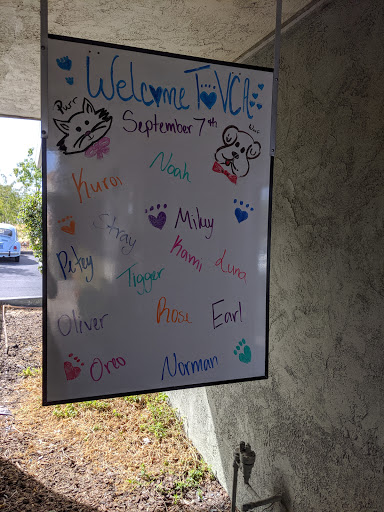 Welcome To VCA
Purr
September 7th
Noah
Kuroi
Stray
Mikey
Petey
Kami
Luna
Tigger
Oliver
Rosi
Earl
Oreo
Norman